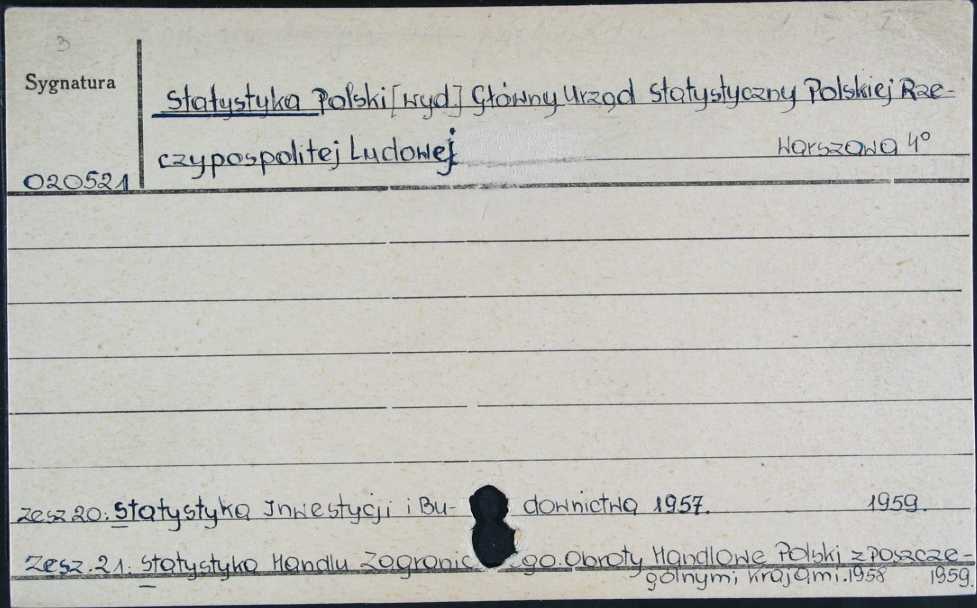 3
Sygnatura
Statystyka Polski [wyd] Główny Urząd Statystyczny Polskiej Rze-
czypospolitej Ludowej Warszawa 4°
020521
zesz 20. Statystyka Inwestycji i Bu- downictwa 1957. 1959.
Zesz. 21. Statystyka Handlu Zagranic go. Obroty Handlowe Polski z poszcze-
gólnymi krajami. 1958 1959.